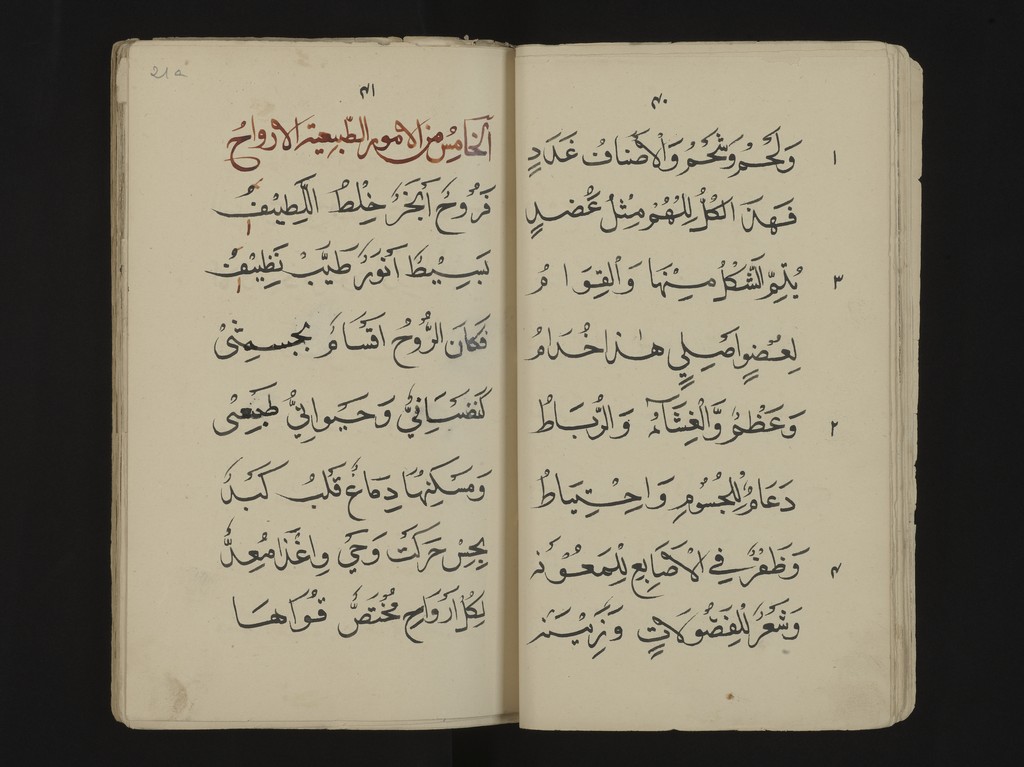 ٤٠
١ وَلَحْمٌ وَشَحْمٌ وَالْأَصْنَافُ غَدَدٍ
فَهٰذَ الْكُلُّ لِلْهُمْ مِثْلُ عَضُدٍ
٣ يُتِمُّ الشَّكْلُ مِنْهَا وَالْقِوَامُ
لِعُضْوٍ اَصْلِيٍ هٰذا خُدَامٌ
٢ وَعَظْمٌ وَّالْغِشَاءُ وَالرُّبَاطُ
دَعَامٌ لِّلْجُسُومِ وَاحْتِيَاطٌ
٤ وَظَفْرٌ فِي الْاَصَابِعِ لِلْمَعُوْنَه
وَشَعْرٌ لِلْفَضُّولَاتٍ وَزِيْنَه
21a
٤١
اَلْخَامِسُ مِنَ الامور الطَّبِيعية الارواحُ
فَرُوحٌ اَبْخَرٌ خِلْطٌ اللَّطِيْفٌ
بَسِيْطٌ اَنْوَرٌ طَيِّبْ نَظِيْفٌ
فَكَانَ الرُّوْحُ اَقْسَامٌ
كَنَفْسَانِيٌّ وَحَيْوَانِيٌّ طَبِيْعِىْ
وَمَسْكِنُهَا دِمَاغٌ قَلْبٌ كَبِدٌ
بِحِسْ حَرَكَتْ وَحَيّ وِاغْذَا مُعِدٌّ
لِكُلِّ اَرْوَاحٍ مُخْتَصٌّ قُوَاهَا